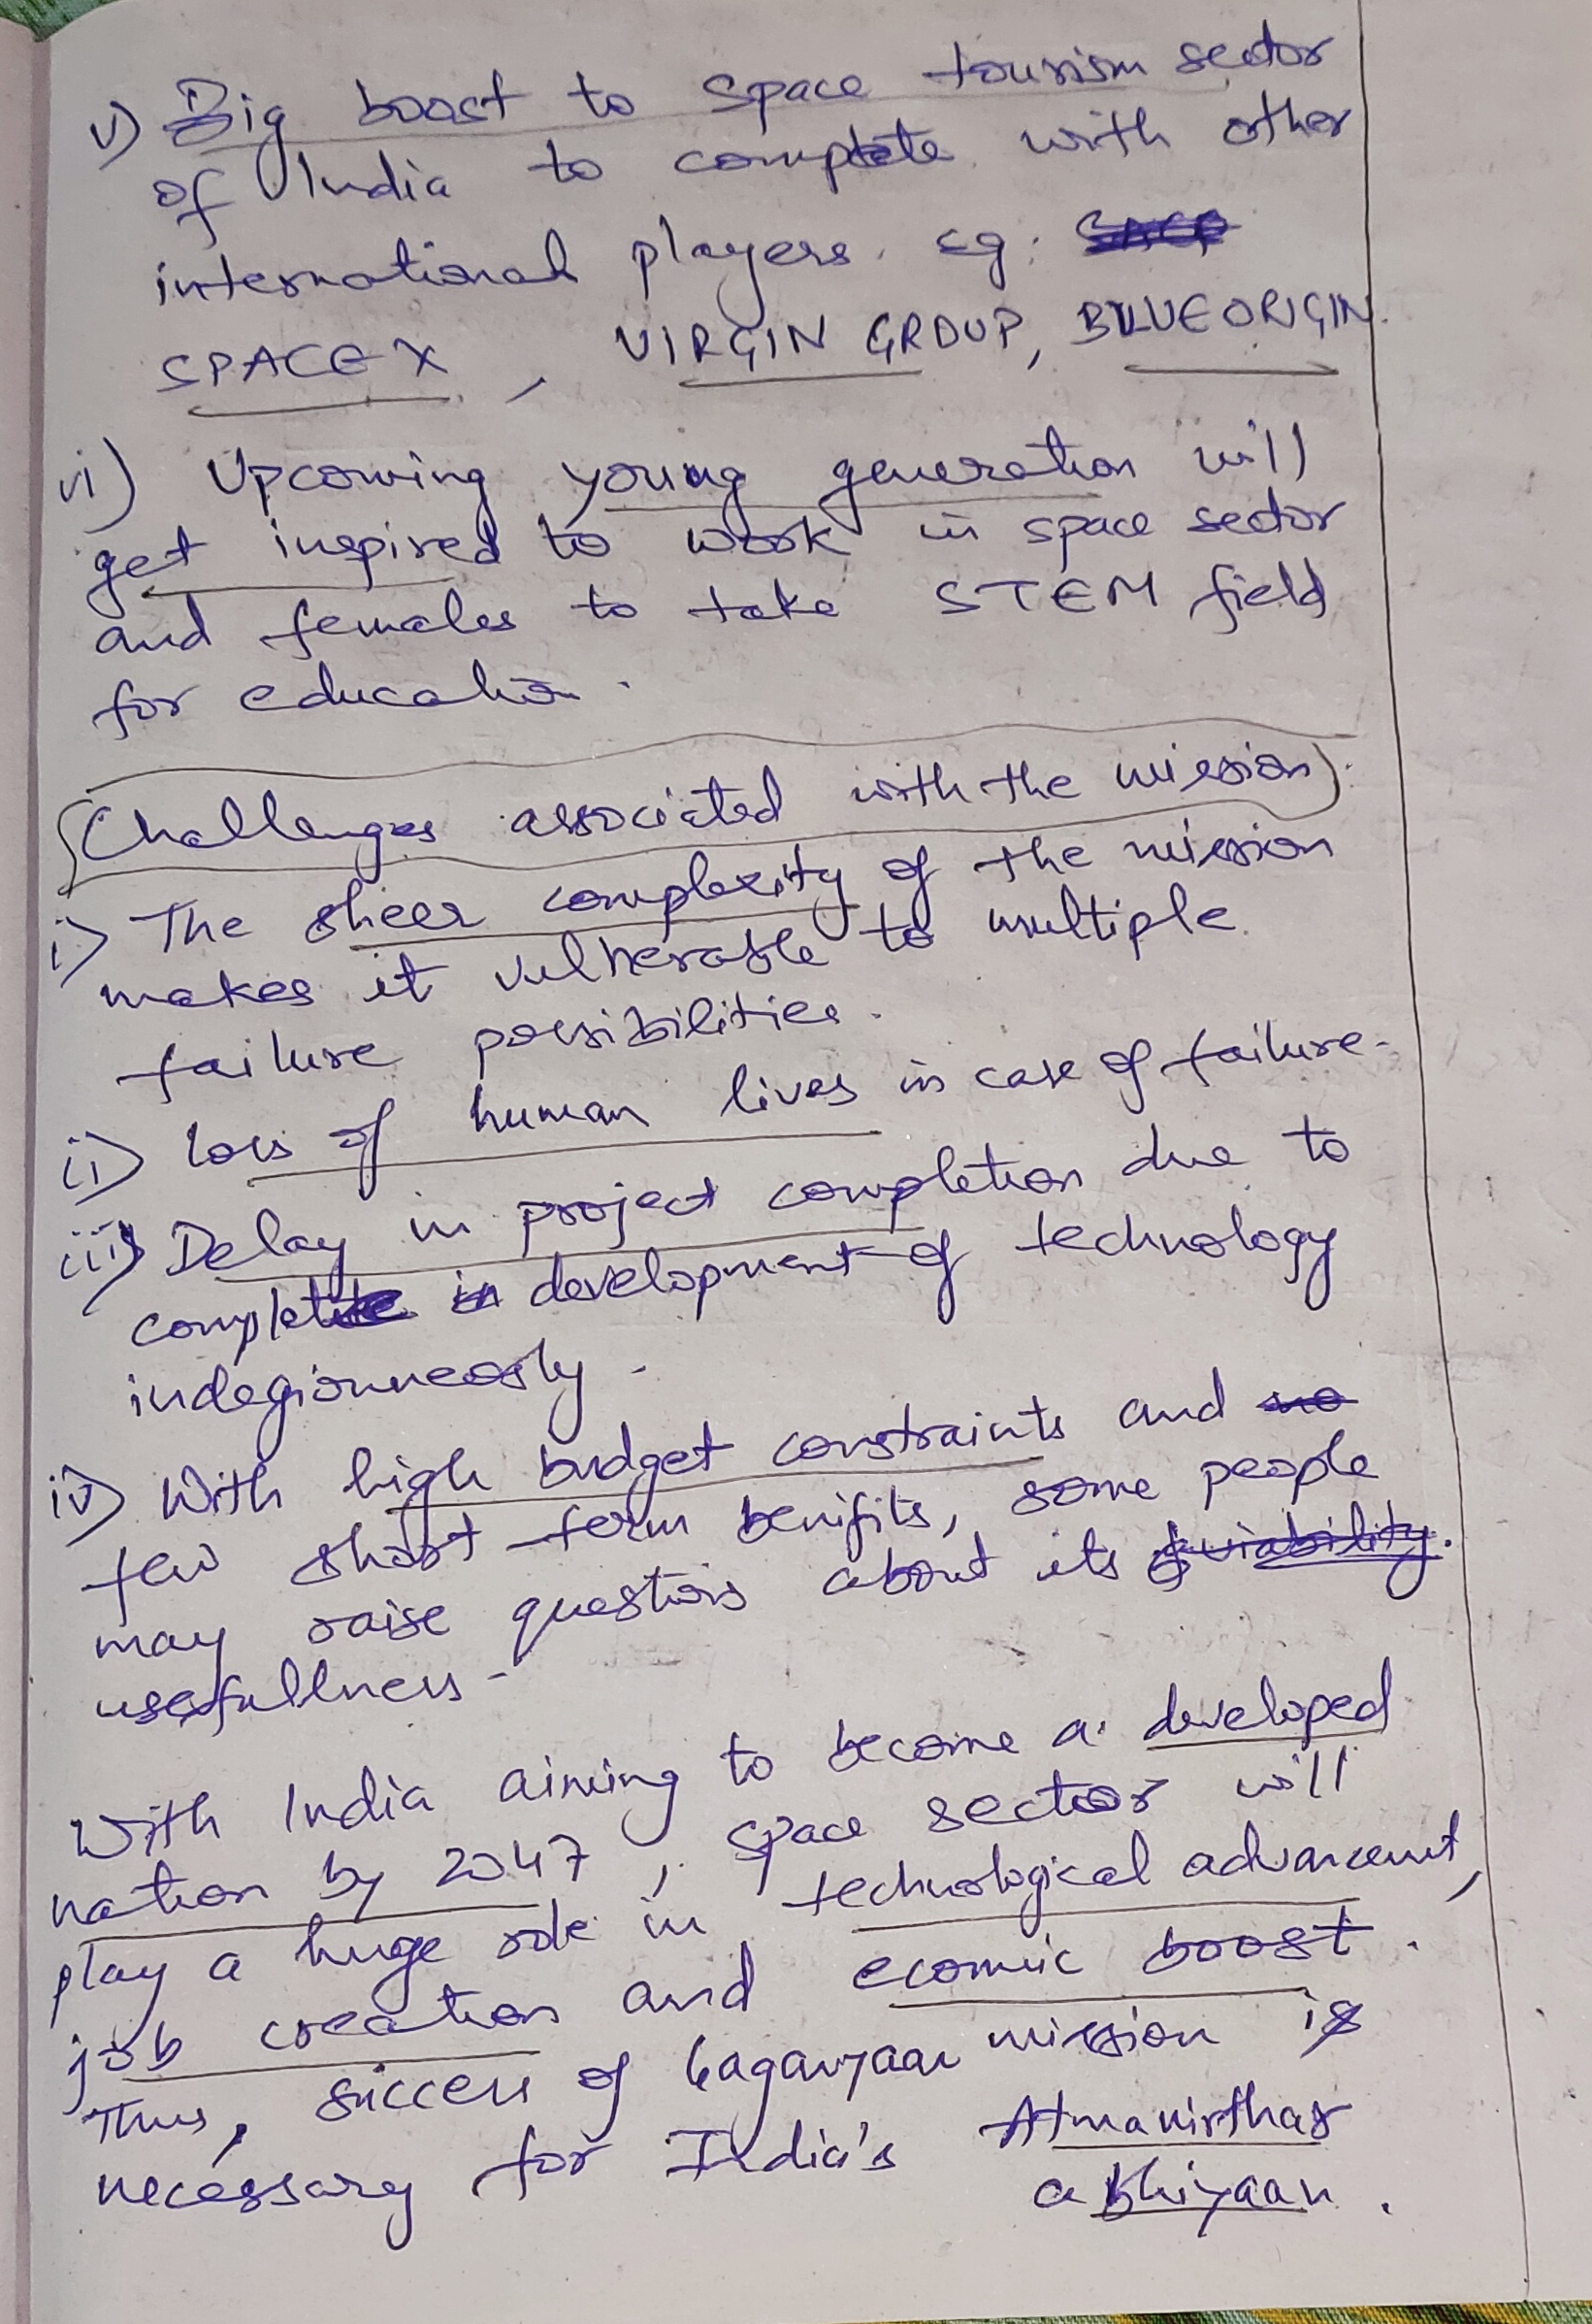 v) Big boost to space tourism sector
of India to compete with other
international players. eg:
SPACE X, VIRGIN GROUP, BLUE ORIGIN.
vi) Upcoming young generation will
get inspired to work in space sector
and females to take STEM field
for education.
Challenges associated with the mission:
i) The sheer complexity of the mission
makes it vulnerable to multiple
failure possibilities.
ii) Loss of human lives in case of failure.
iii) Delay in project completion due to
complete in development of technology
indegionneosly.
iv) With high budget constraints and no
few short-term benifits, some people
may raise questions about its viability.
usefullness-
With India aiming to become a developed
nation by 2047, space sector will
play a huge role in technological advancement,
job creation and ecomic boost.
Thus, success of Gaganyaan mission is
necessary for India's Atmanirthar
abhiyaan.